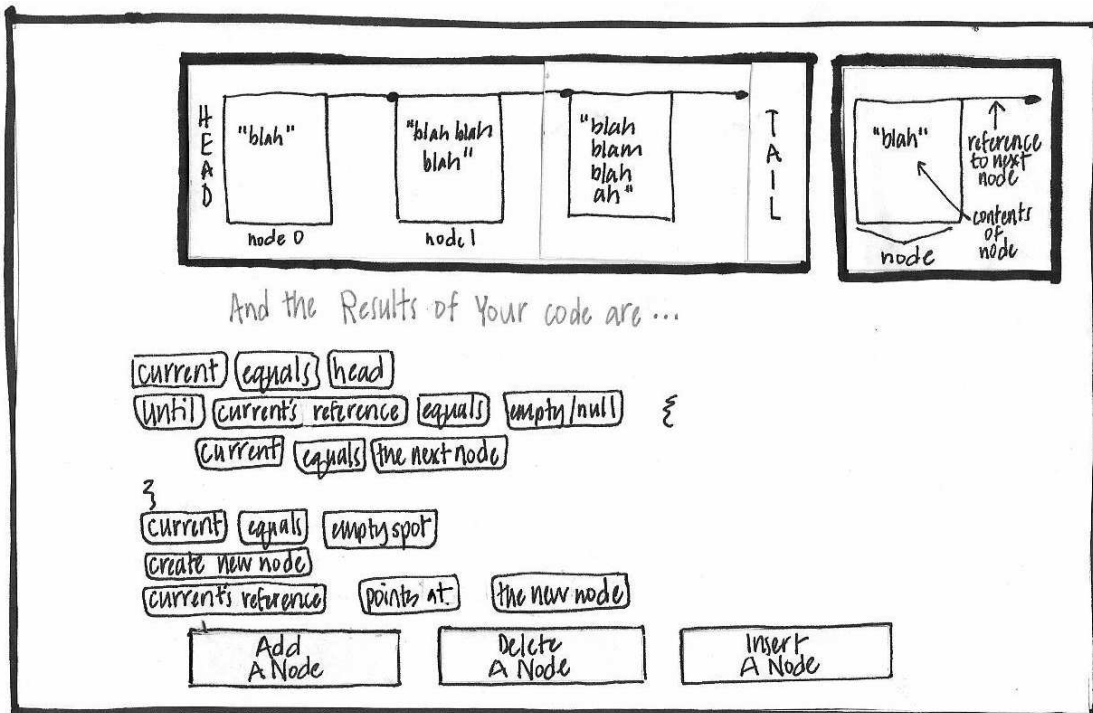 HEAD
"blah"
node 0
"blah blah
blah"
node 1
"blah
blam
blah
ah"
TAIL
"blah"
reference
to next
node
contents
of
node
node
And the Results of Your code are...
current equals head
until current's reference equals empty/null {
current equals the next node
}
current equals empty spot
create new node
current's reference points at the new node
Add
A Node
Delete
A Node
Insert
A Node